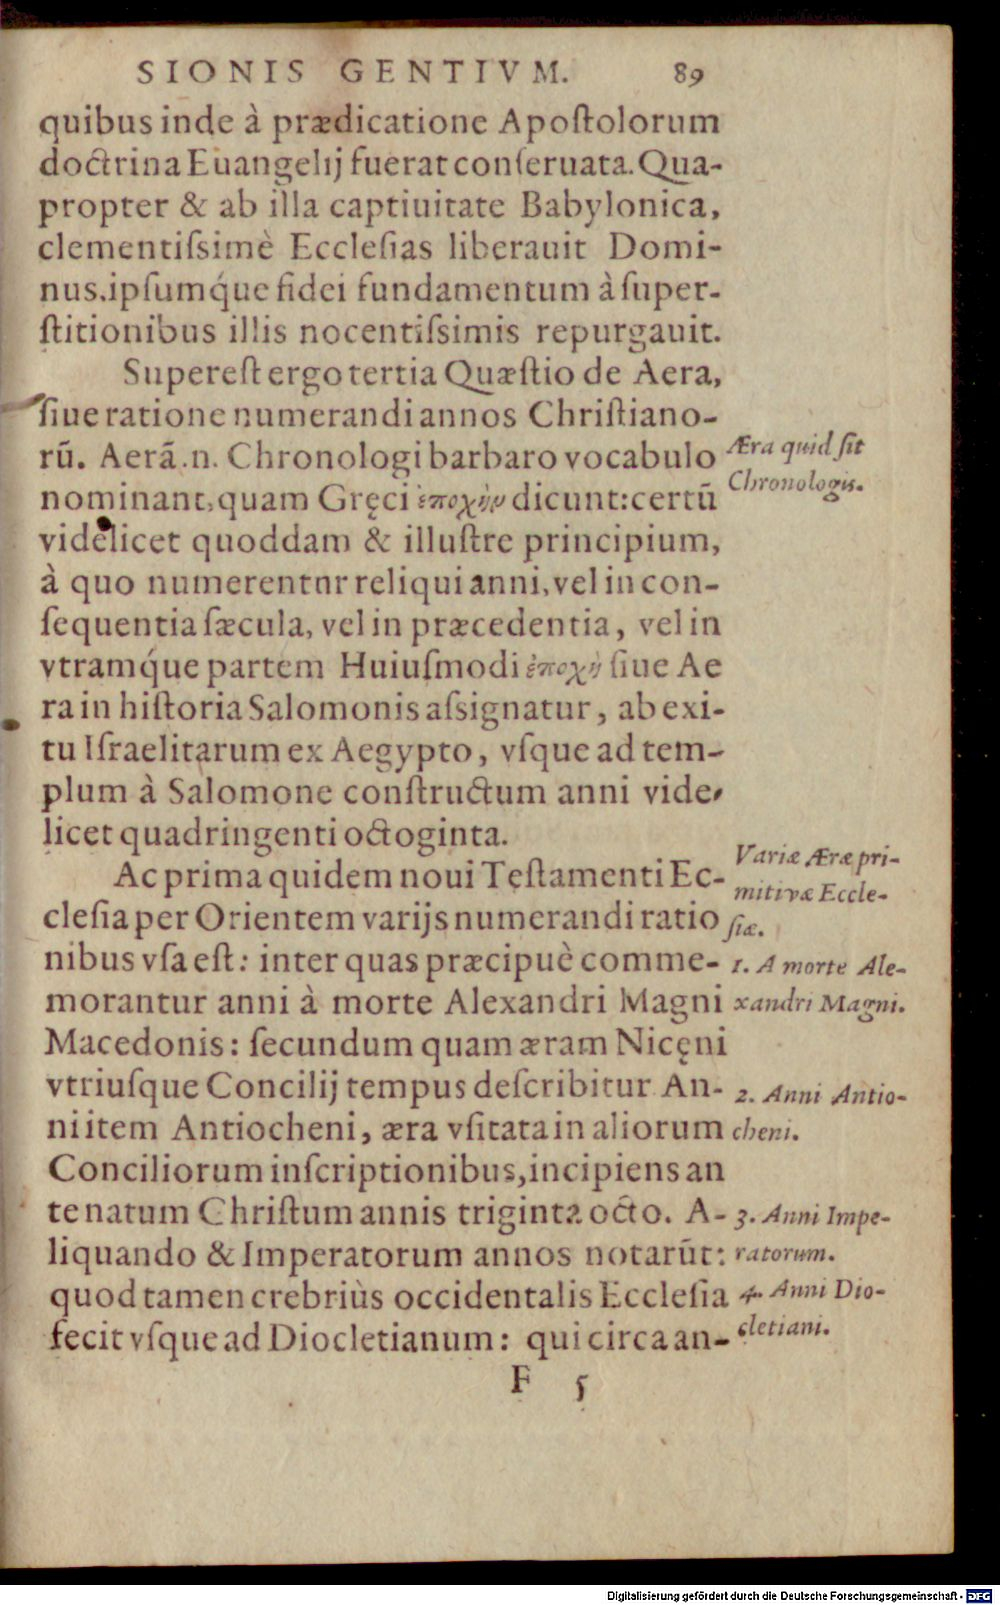 SIONIS GENTIVM. 89
quibus inde à prædicatione Apoſtolorum
doctrina Euangelij fuerat conſeruata. Qua-
propter & ab illa captiuitate Babylonica,
clementiſsimè Eccleſias liberauit Domi-
nus, ipſumq́ue fidei fundamentum à ſuper-
ſtitionibus illis nocentiſsimis repurgauit.
Supereſt ergo tertia Quæſtio de Aera,
ſiue ratione numerandi annos Chriſtiano-
rū. Aerā .n. Chronologi barbaro vocabulo
Æra quid ſit
nominant, quam Gręci ἐποχὴν dicunt: certū
Chronologis.
videlicet quoddam & illuſtre principium,
à quo numerentur reliqui anni, vel in con-
ſequentia ſæcula, vel in præcedentia, vel in
vtramq́ue partem Huiuſmodi ἐποχὴ ſiue Ae
ra in hiſtoria Salomonis aſsignatur, ab exi-
tu Iſraelitarum ex Aegypto, vſque ad tem-
plum à Salomone conſtructum anni vide-
licet quadringenti octoginta.
Ac prima quidem noui Teſtamenti Ec-
Variæ Æræ pri-
mitivæ Eccle-
ſiæ.
cleſia per Orientem varijs numerandi ratio
nibus vſa eſt: inter quas præcipuè comme-
1. A morte Ale-
morantur anni à morte Alexandri Magni
xandri Magni.
Macedonis: ſecundum quam æram Nicęni
vtriuſque Concilij tempus deſcribitur An-
2. Anni Antio-
ni item Antiocheni, æra vſitata in aliorum
cheni.
Conciliorum inſcriptionibus, incipiens an
te natum Chriſtum annis triginta octo. A-
3. Anni Impe-
liquando & Imperatorum annos notarūt:
ratorum.
quod tamen crebriùs occidentalis Eccleſia
4. Anni Dio-
fecit vſque ad Diocletianum: qui circa an-
cletiani.
F 5
Digitalisierung gefördert durch die Deutsche Forschungsgemeinschaft - DFG